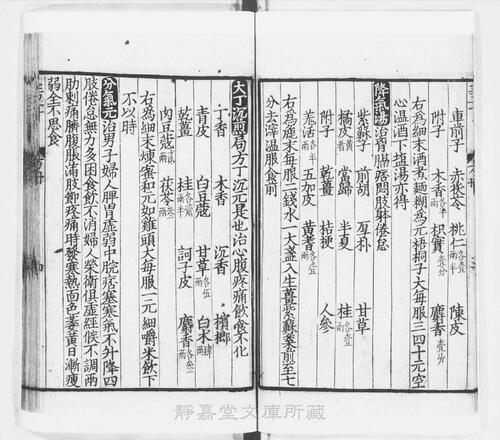 車前子 赤茯苓 桃仁各壹兩半 陳皮
附子 木香各半兩 枳實壹分 麝香壹分
右為細末酒煮麵糊為元梧桐子大每服三四十元空
心温酒下塩湯亦得
降氣湯治胷膈痞悶肢躰倦怠
紫蘇子 前胡 厚朴 甘草
橘皮 當歸 半夏 桂各壹兩
附子 乾薑 桔梗 人參
羗活各半兩 五加皮 黄耆各壹兩
右為麄末每服二錢水一大盞入生薑紫蘇葉煎至七
分去滓温服食前
大丁沉煎局方丁沉元是也治心腹疼痛飲食不化
丁香 沉香 檳榔
青皮 白豆蔻 甘草各伍兩 白朮肆兩
乾薑 桂各壹兩 訶子皮 麝香各
肉豆蔻 茯苓
右為細末煉蜜和元如雞頭大每服一元細嚼米飲下
不以時
分氣元治男子婦人脾胃虚弱中脘痞塞寒氣不升降四
肢倦怠無力多困食飲不消婦人榮衛俱虚經候不調兩
肋刺痛臍腹脹滿肢節疼痛時發寒熱面色萎黄日漸瘦
弱全不思食
靜嘉堂文庫所藏